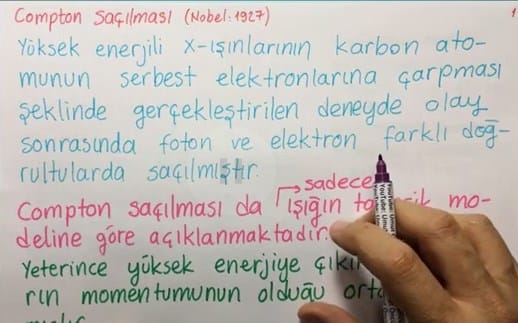 Compton Saçılması (Nobel: 1927)
1
Yüksek enerjili X-ışınlarının karbon ato-
munun serbest elektronlarına çarpması
şeklinde gerçekleştirilen deneyde olay
sonrasında foton ve elektron farklı doğ-
rultularda saçılmıştır.
sadece
Compton saçılması da ışığın mo-
deline göre açıklanmaktadır.
Yeterince yüksek enerjiye
rın momentumunun olduğu